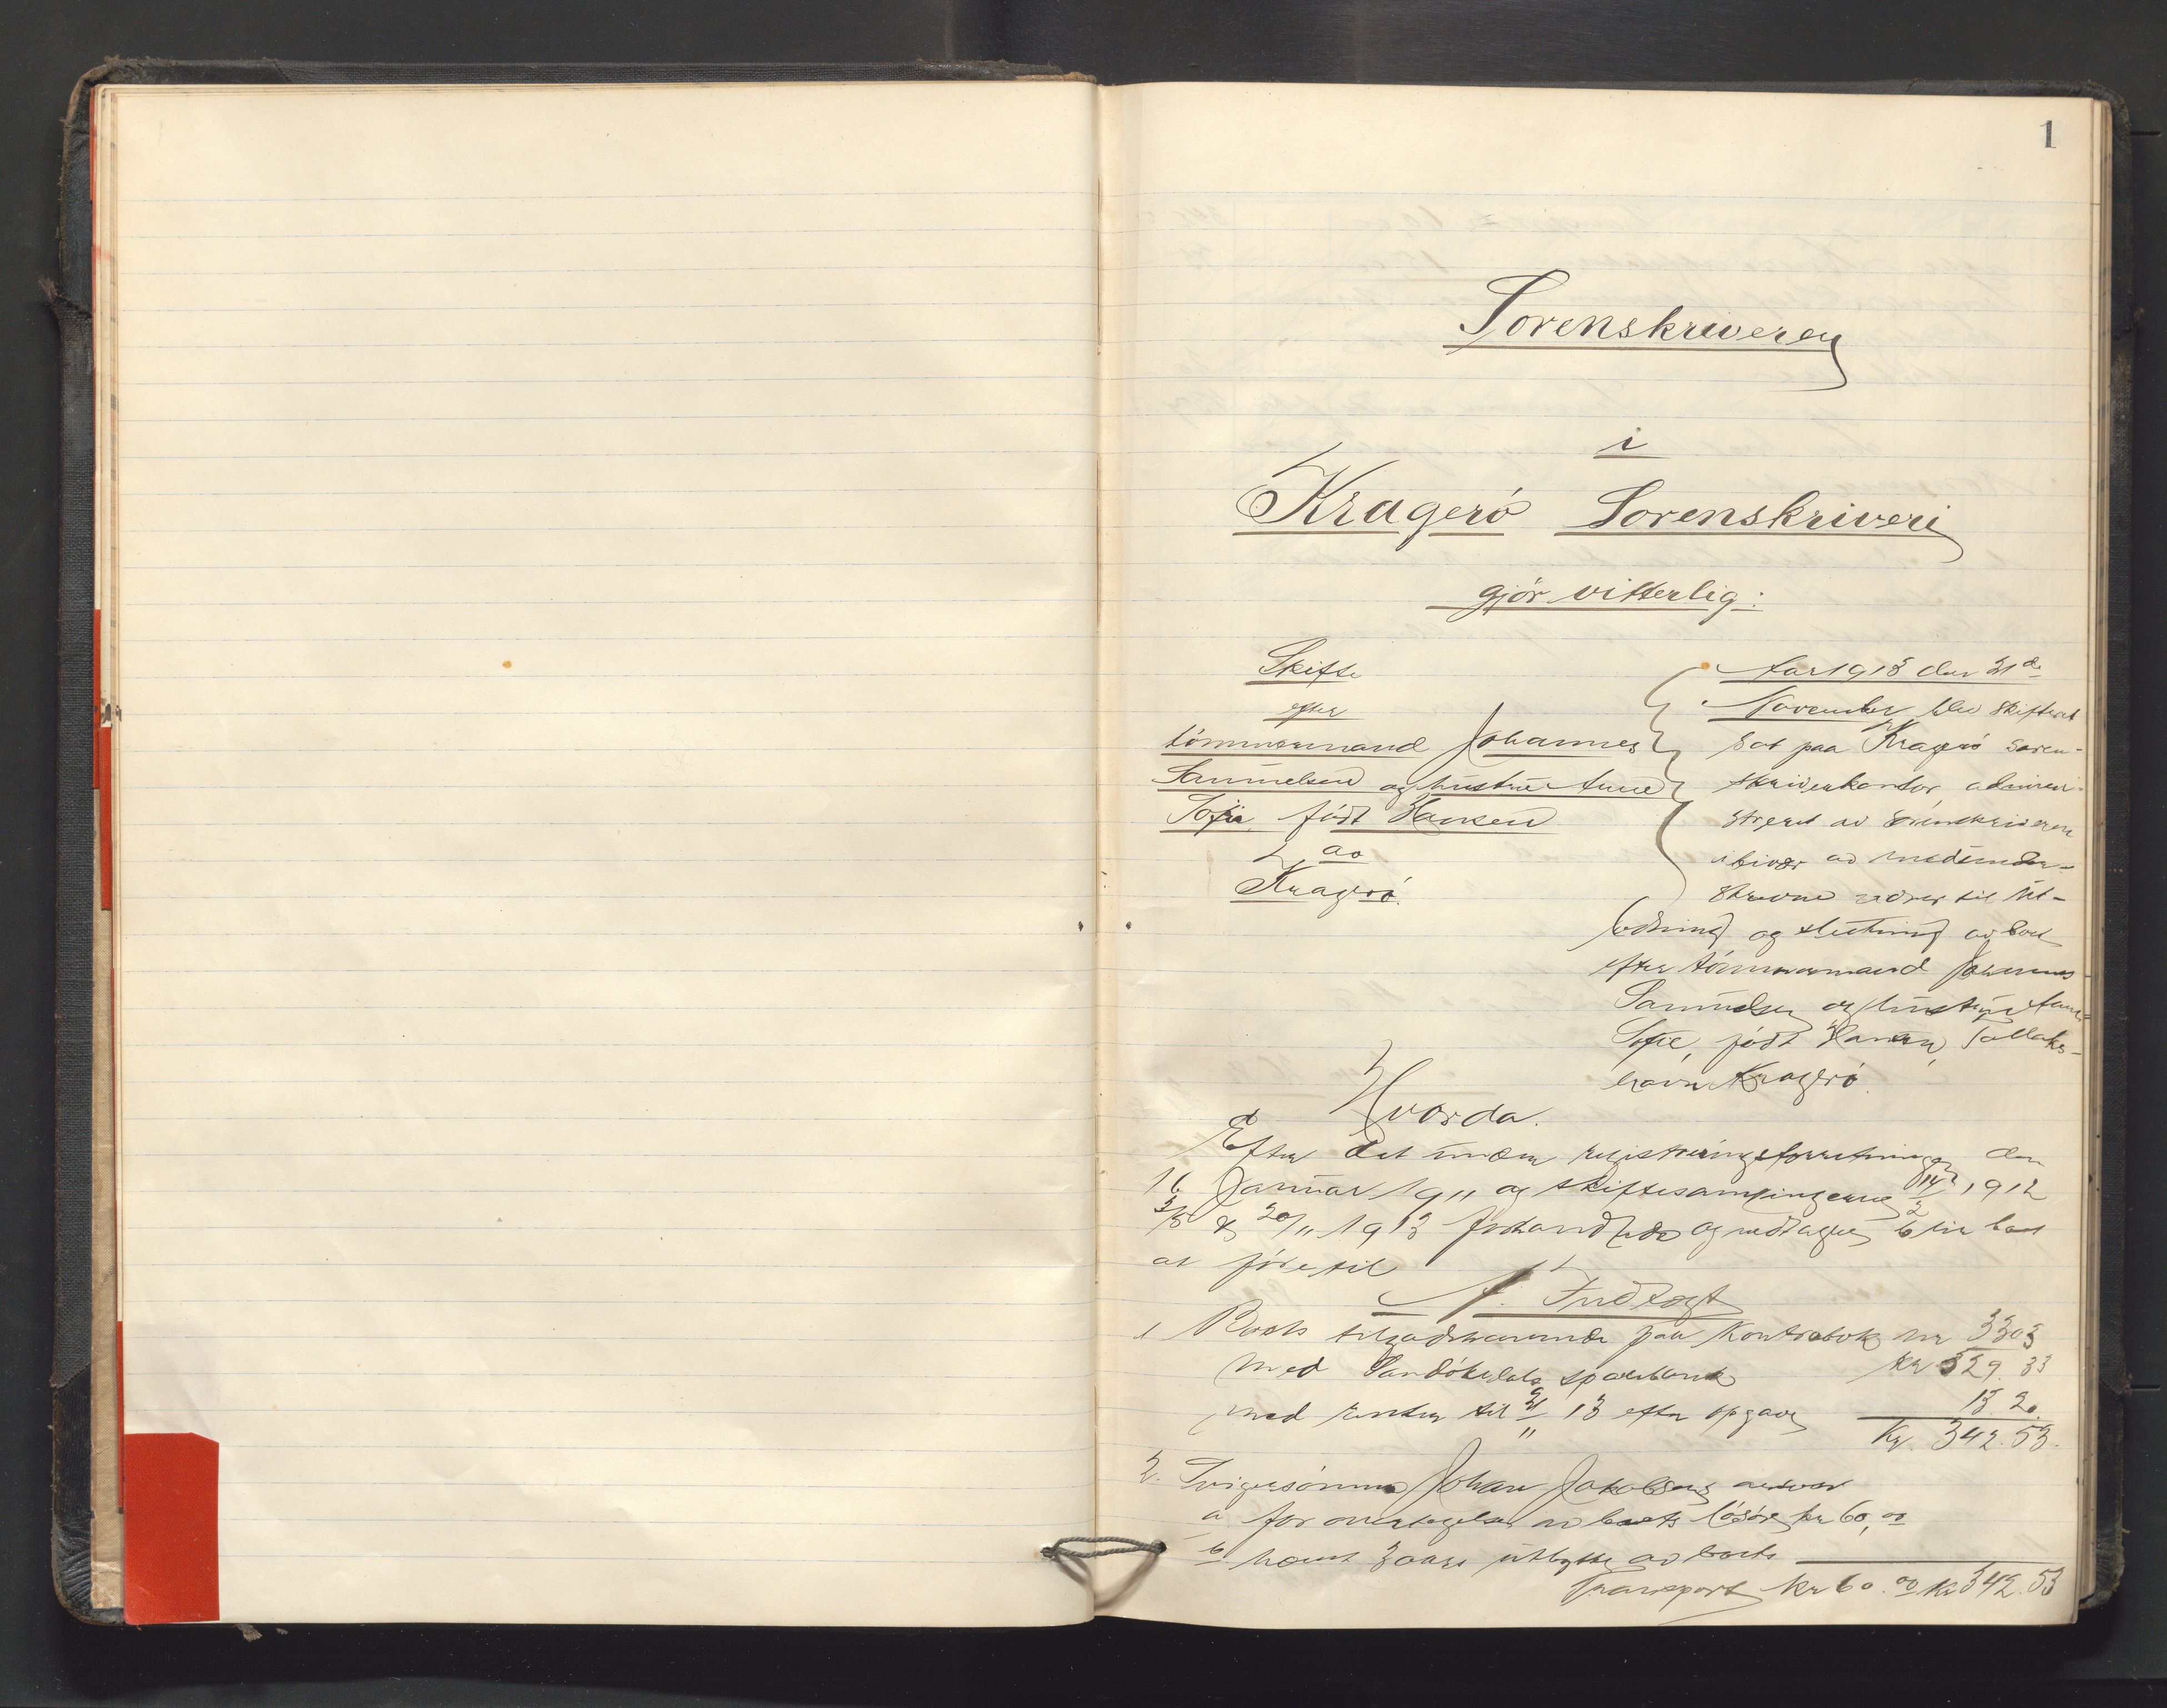 1
Sorenskriveren
i
Kragerö Sorenskriveri
gjör vitterlig:
Skifte
efter
tömmermand Johannes
Samuelsen og hustru Anne
Sofie, født Hansen
av
Kragerö.
Aar 1913 den 21de
November blev skifteret
sat paa Kragerö soren-
skriverkontor, admini-
streret av sorenskriveren
i bivær av medunder-
skrevne vidner til ut-
lodning og slutning av boet
efter tömmermand Johannes
Samuelsen og hustru Anne
Sofie, født Hansen, Tallaks-
havn Kragerö.
Hvorda.
Efter det under registreringsforretningen den
16 Januar 1911 og skiftesamlingerne 14/2 1912
3/5 & 20/11 1913 forhandlede og vedtagne blir boet
at före til
A. Indtægt
1 Boets tilgodehavende paa Kontrabok nr 3303
med Sandökedals sparebank kr 329.33
med renter til 21/11 13 efter opgave 13.20.
Kr. 342.53.
2. Svigersönnen Johan Jakobsens ansvar
a for overtagelse av boets lösöre kr 60,00
b hans 3 aars utbytte av boets
Transport kr 60.00 kr 342.53